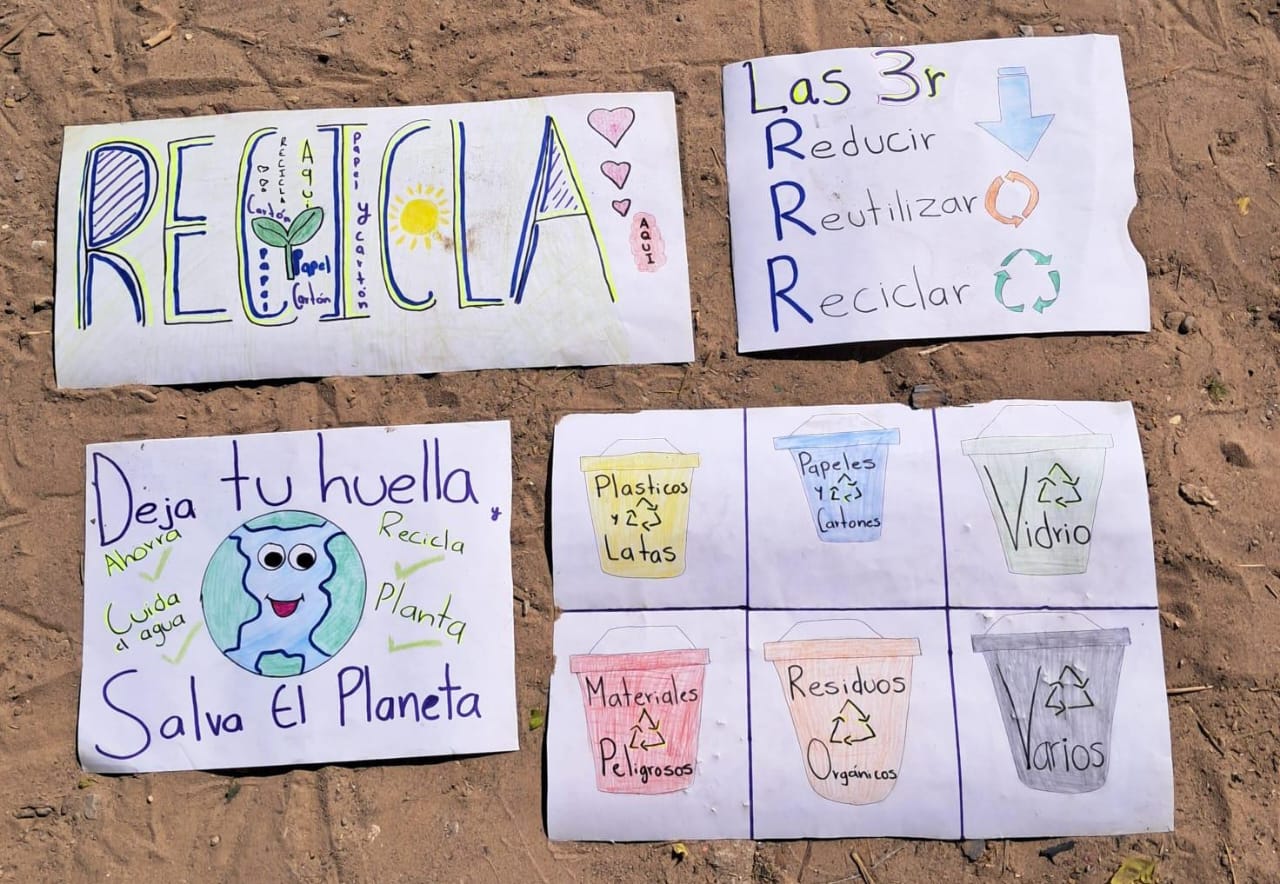 RECICLA
RECICLA
Aquí
Cartón
Papel
Papel
Cartón
Papel y cartón
AQUI
Las 3r
Reducir
Reutilizar
Reciclar
Deja tu huella y
Ahorra
Recicla
Cuida
el agua
Planta
Salva El Planeta
Plasticos
y
Latas
Papeles
y
Cartones
Vidrio
Materiales
Peligrosos
Residuos
Orgánicos
Varios